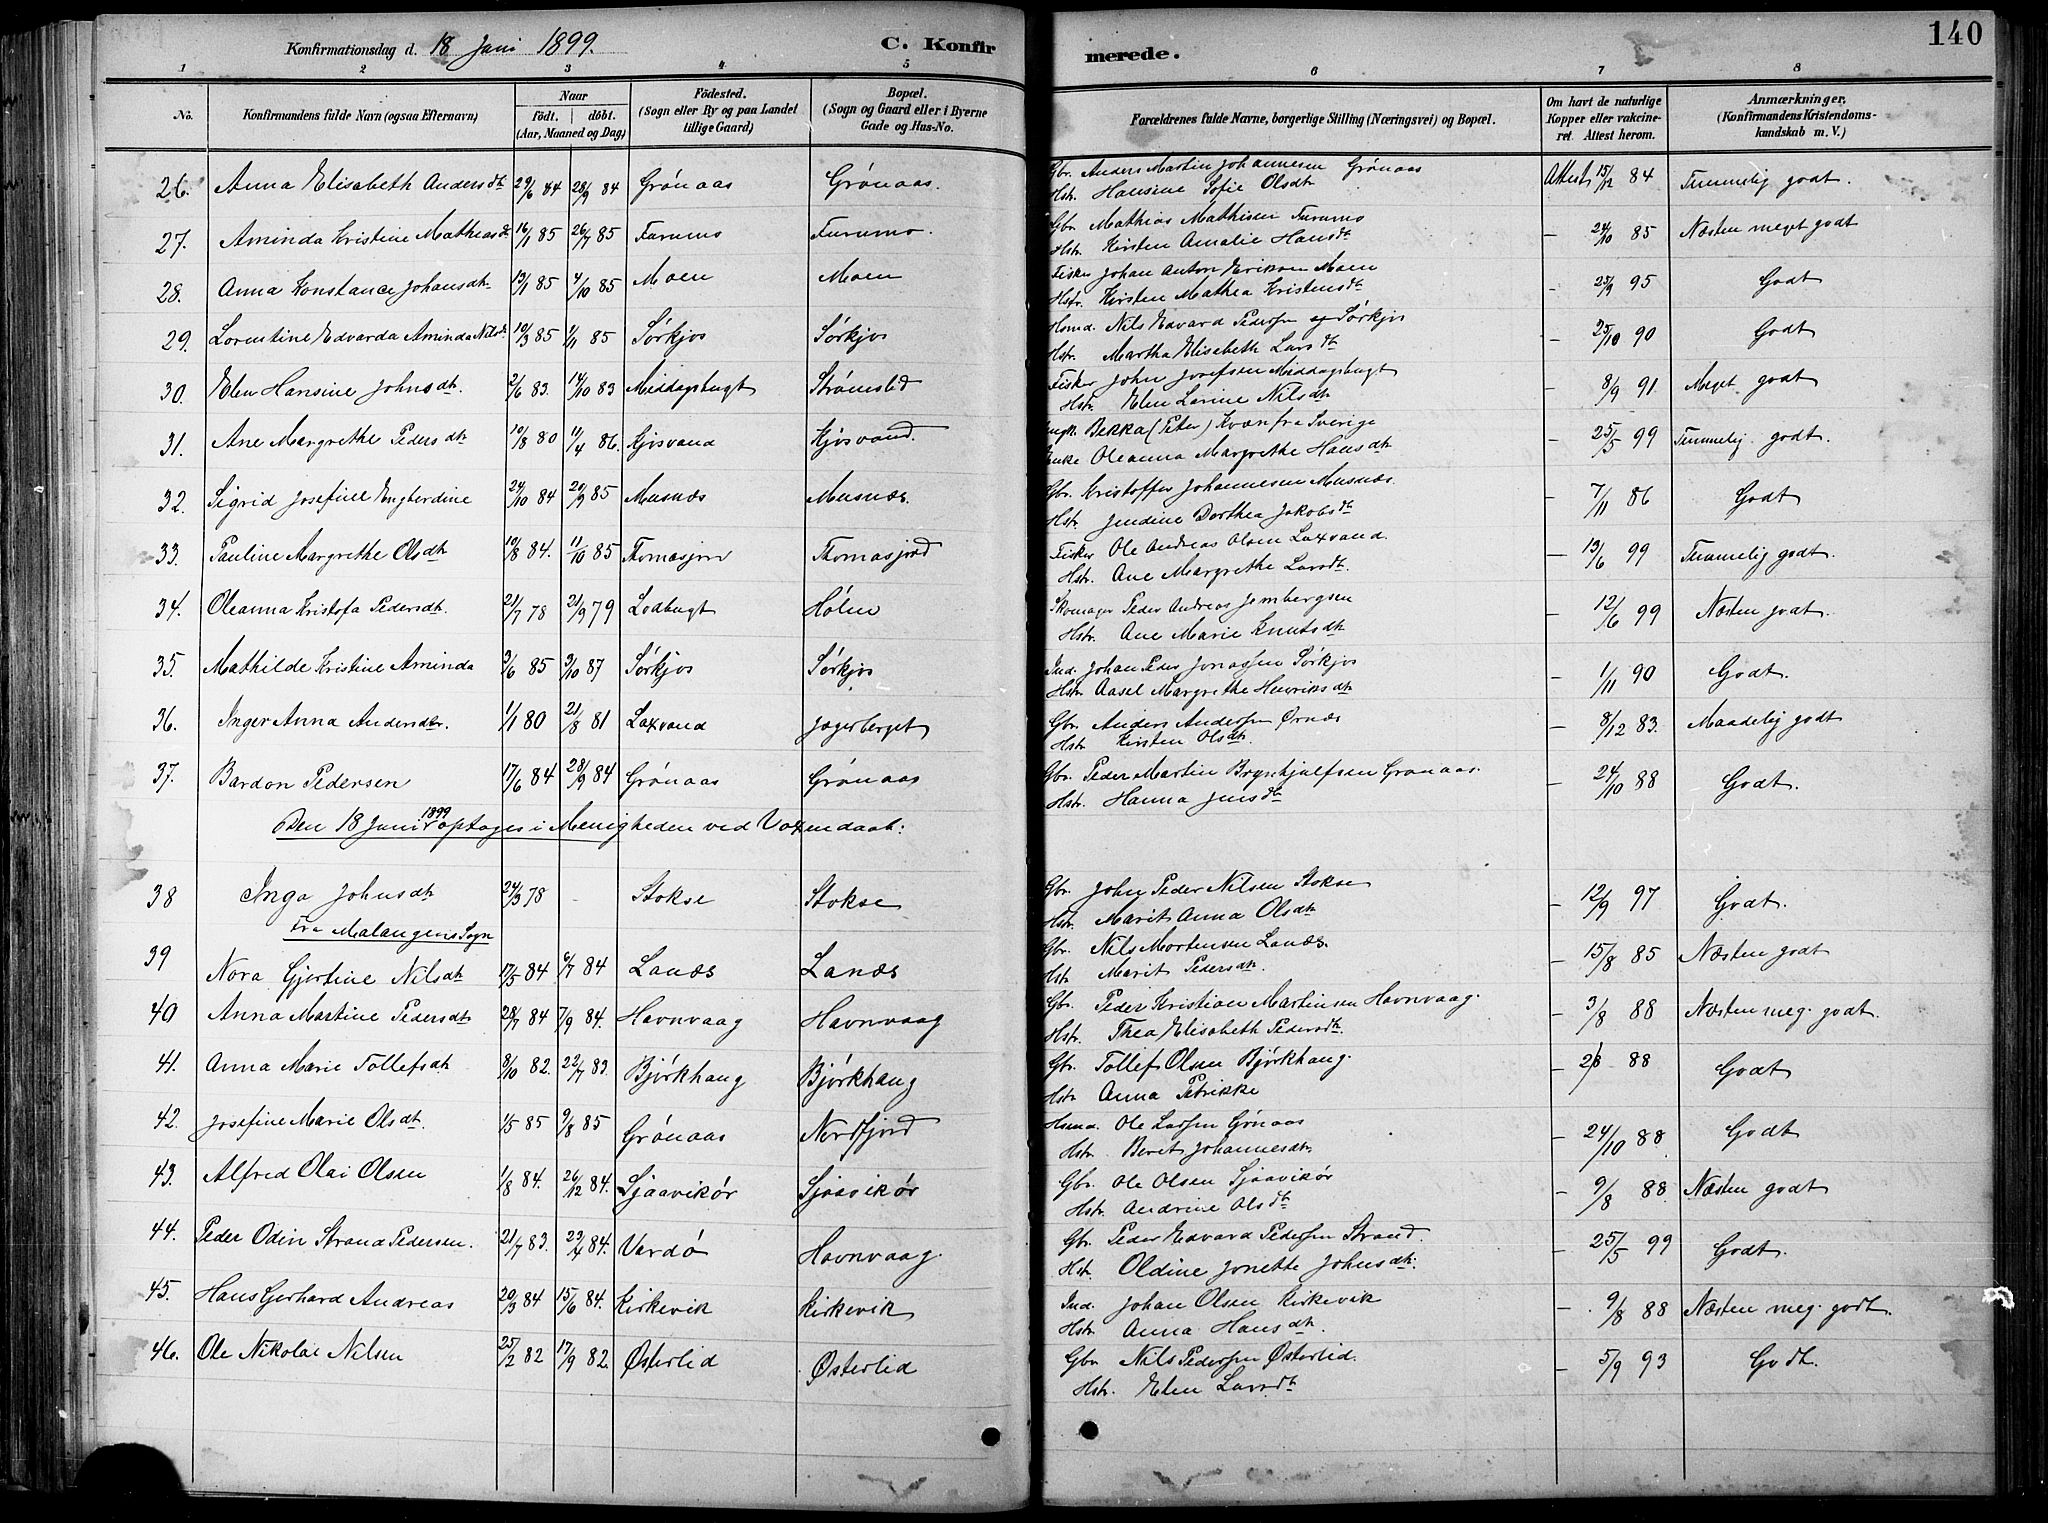 140
Konfirmationsdag d. 18 Juni 1899.
C. Konfirmerede.
1 2 3 4 5 6 7 8
No.
Konfirmandens fulde Navn (ogsaa Efternavn)
Naar
födt. döbt.
(Aar, Maaned og Dag)
Födested.
(Sogn eller By og paa Landet
tillige Gaard)
Bopæl.
(Sogn og Gaard eller i Byerne
Gade og Hus-No.
Forældrenes fulde Navne, borgerlige Stilling (Næringsvei) og Bopæl.
Om havt de naturlige
Kopper eller vakcine-
ret. Attest herom.
Anmærkninger.
(Konfirmandens Kristendoms-
kundskab m. V.)
26. Anna Elisabeth Andersdt 29/6 84 28/9 84 Grønaas Grønaas. Gbr. Anders Martin Johannesen Grønaas Attest 15/12 84 Temmelig godt.
Hstr. Hansine Sofie Olsdt
27. Aminda Kristine Mathiasdt. 16/1 85 26/7 85 Furumo Furumo. Gbr. Mathias Mathisen Furumo – 24/10 85 Næsten meget godt
Hstr. Kirsten Amalie Hansdt
28. Anna Konstance Johansdt. 13/1 85 4/10 85 Moen Moen Fisker Johan Anton Eriksen Moen – 25/9 95 Godt
Hstr. Kirsten Mathea Kristensdt
29. Lorentine Edvarda Aminda Nilsdt. 10/3 85 1/11 85 Sørkjos Sørkjos Hsmd. Nils Edvard Pedersen Sørkjos – 25/10 90 Godt
Hstr. Martha Elisabeth Larsdt
30. Elen Hansine Johnsdt. 2/6 83. 14/10 83 Middagsbugt Strømsled Fisker John Josefsen Middagsbugt – 8/9 91. Meget godt
Hstr. Elen Larine Nilsdt
31. Ane Margrethe Pedersdt 10/8 80 11/4 86. Kjosvand Kjosvand. Bekka (Peter) Kvæn fra Sverige – 25/5 99 Temmelig godt.
Enke Oleanna Margrethe Hansdt
32. Sigrid Josefine Engberdine 24/10 84 20/9 85 Musnæs Musnæs. Gbr. Kristoffer Johannesen Musnæs. – 7/11 86 Godt
Hstr. Jendine Dorthea Jakobsdt
33. Pauline Margrethe Olsdt 10/8 84. 11/10 85 Thomasjord Thomasjord Fisker Ole Andreas Olsen Laxvand. – 13/6 99 Temmelig godt.
Hstr. Ane Margrethe Larsdt.
34. Oleanna Kristofa Pedersdt. 21/7 78 21/9 79 Lodbugt Holm Skomager Peder Andreas Jembergsen – 12/6 99 Næsten godt.
Hstr. Ane Marie Knutsdt
35. Mathilde Kristine Aminda 3/6 85 3/10 87 Sørkjos Sørkjos Ind. Johan Peder Jonassen Sørkjos – 1/11 90 Godt.
Hstr. Aasel Margrethe Henriksdt
36. Inger Anna Andersdtr. 1/1 80 21/8 81 Laxvand Jægerberget Gbr. Anders Andersen Ørnæs – 8/12 83. Maadelig godt
Hstr Kirsten Olsdt.
37. Bardon Pedersen 17/6 84 28/9 84 Grønaas Grønaas Gbr. Peder Martin Brynhjulfsen Grønaas. – 24/10 88 Godt.
Hstr. Hanna Jensdt
Den 18 Juni 1899 optages i Menigheden ved Voxendaab:
38 Inga Johnsdt 24/3 78 – Stokse Stokse Gbr. John Peder Nilsen Stokse – 12/9 97 Godt.
Hstr. Marit Anna Olsdt
Fra Malangens Sogn
39 Nora Gjertine Nilsdt 17/5 84 6/7 84 Lanæs Lanæs Gbr. Nils Mortensen Lanæs. – 15/8 85 Næsten godt
Hstr Marit Pedersdt.
40 Anna Martine Pedersdt 28/7 84 7/9 84. Havnvaag Havnvaag Gbr. Peder Kristian Martinsen Havnvaag. – 3/8 88 Næsten meg. godt.
Hstr. Thea Elisabeth Pedersdt.
41. Anna Marie Tollefsdt 8/10 82. 22/7 83. Bjørkhaug Bjørkhaug Gbr. Tollef Olsen Bjørkhaug. – 88 Godt
Hstr Anna Petrikke
42. Josefine Marie Olsdt. 1/5 85 9/8 85 Grønaas Nordfjord Hsmd. Ole Larsen Grønaas – 24/10 88 Godt
Hstr. Berit Johannesdt.
43. Alfred Olai Olsen 1/8 84. 26/12 84. Sjaavikør Sjaavikør Gbr. Ole Olsen Sjaavikør – 9/8 88. Næsten godt
Hstr. Andrine Olsdt
44. Peder Odin Strand Pedersen. 21/7 83. 23/4 84. Vardø Havnvaag. Gbr. Peder Edvard Pedersen Strand. – 25/5 99 Godt.
Hst. Oldine Jonette Johnsdt.
45. Hans Gerhard Andreas 20/3 84 15/6 84. Kirkevik Kirkevik Ind. Johan Olsen Kirkevik – 9/8 88 Næsten meg. godt.
Hstr. Anna Hansdt.
46. Ole Nikolai Nilsen 25/2 82 17/9 82. Østerlid Østerlid Gbr. Nils Pedersen Østerlid. – 5/9 93 Godt.
Hstr. Elen Larsdt